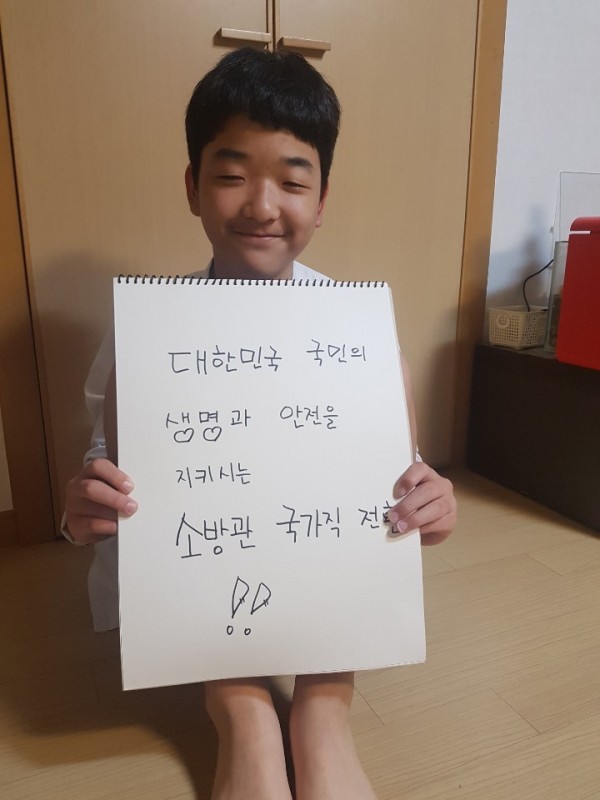 대한민국 국민의
생명과 안전을
지키시는
소방관 국가직 전환
!!